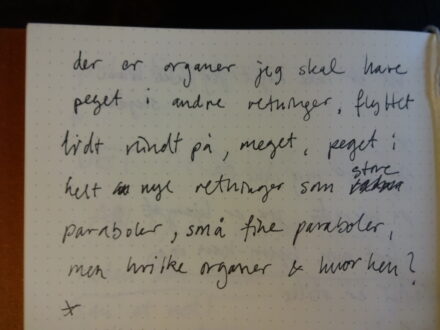 der er organer jeg skal have
peget i andre retninger, flyttet
lidt rundt på, meget, peget i
helt nye retninger som store
paraboler, små fine paraboler,
men hvilke organer & hvor hen?
*